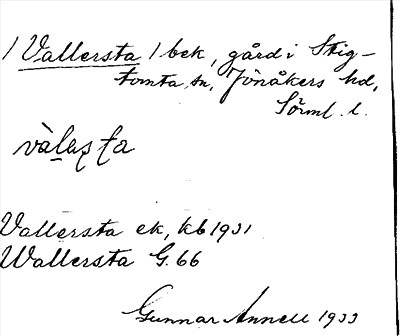 1 Vallersta 1 bek, gård i Stig-
tomta sn, Jönåkers hd,
Sörml. l.
vàlaşta
Vallersta ek, kb 1931
Wallersta G. 66
Gunnar Annell 1933